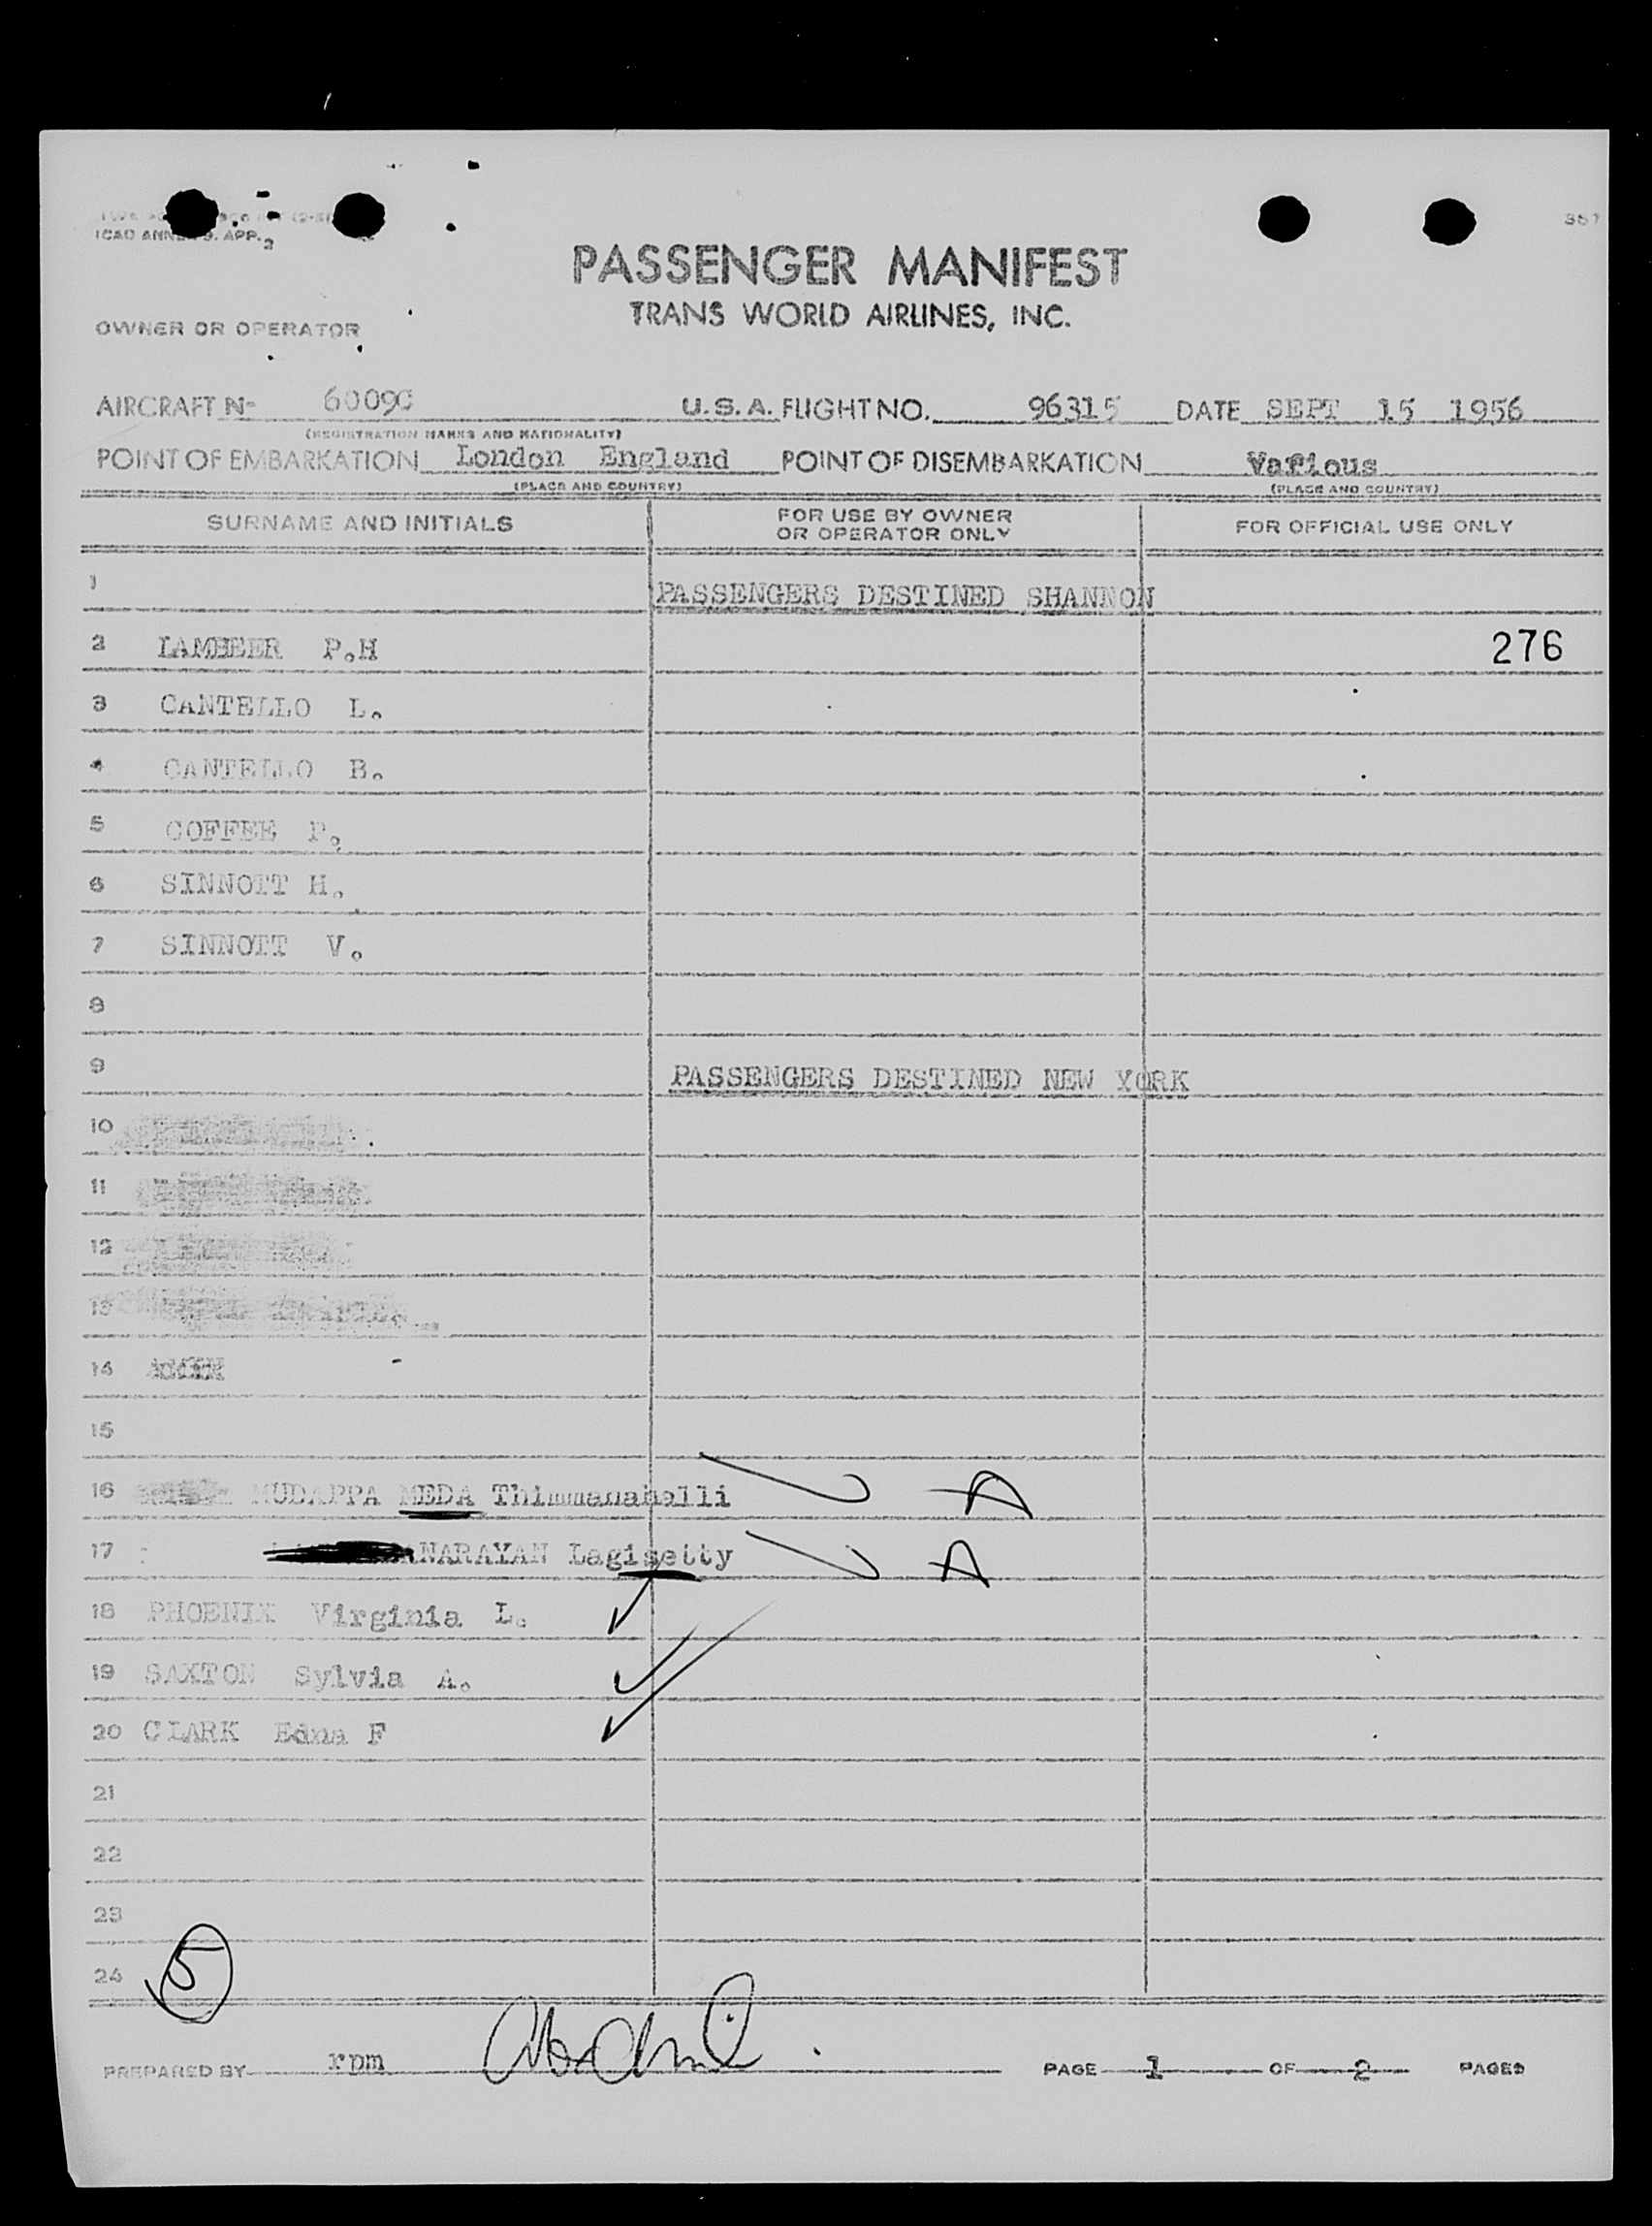 357
ICAO ANNEX 9. APP. 2
PASSENGER MANIFEST
TRANS WORLD AIRLINES, INC.
OWNER OR OPERATOR
AIRCRAFT N- 6009C U.S.A. FLIGHT NO. 96315 DATE SEPT 15 1956
(REGISTRATION MARKS AND NATIONALITY)
POINT OF EMBARKATION London England POINT OF DISEMBARKATION Various
(PLACE AND COUNTRY) (PLACE AND COUNTRY)
SURNAME AND INITIALS FOR USE BY OWNER OR OPERATOR ONLY FOR OFFICIAL USE ONLY
1 PASSENGERS DESTINED SHANNON
2 LAMBEER P.H 276
3 CANTELLO L.
4 CANTELLO B.
5 COFFEE P.
6 SINNOTT H.
7 SINNOTT V.
8
9 PASSENGERS DESTINED NEW YORK
10
11
12
13
14
15
16 MUDAPPA MEDA Thimmanahalli A
17 NARAYAN Lagisetty A
18 PHOENIX Virginia L.
19 SAXTON Sylvia A.
20 CLARK Edna F
21
22
23
24 5
PREPARED BY rpm PAGE 1 OF 2 PAGES